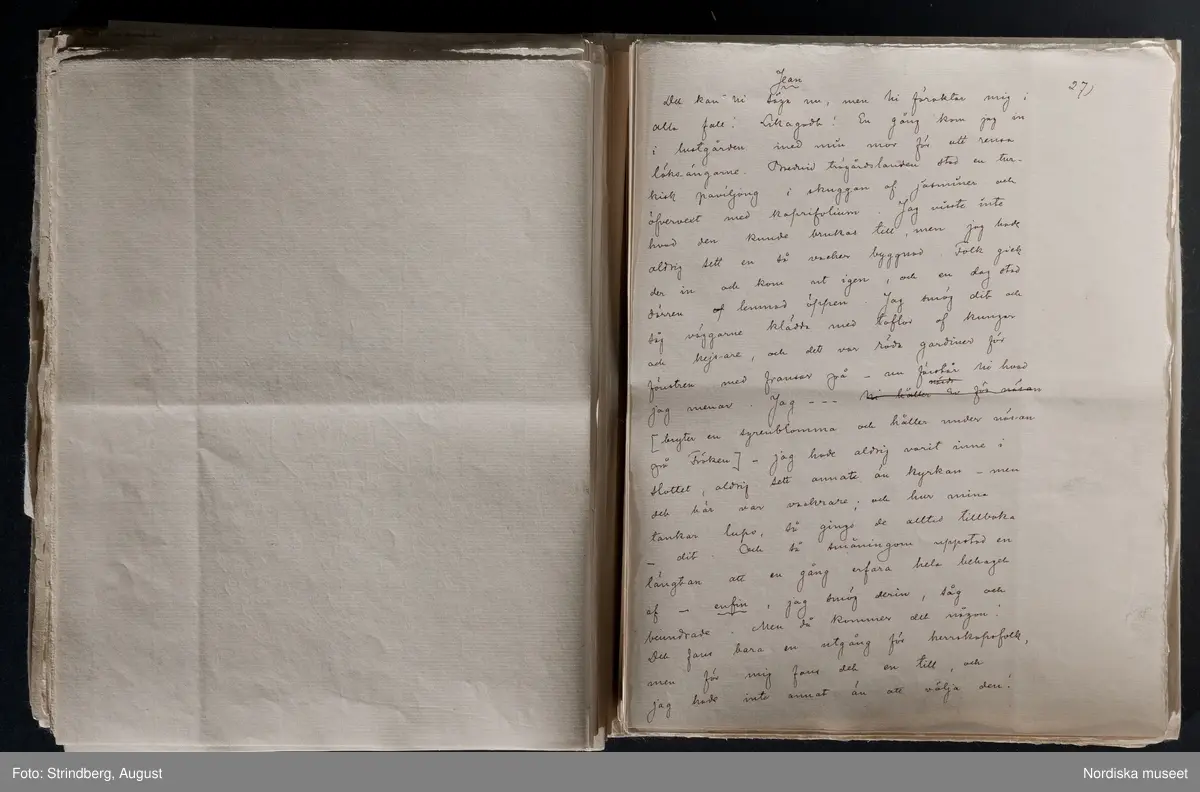 27)
Jean
Det kan Ni säga nu, men Ni föraktar mig i
alla fall! Likagodt! En gång kom jag in
i lustgården med min mor för att rensa
löksängarne. Bredvid trägårdslanden stod en tur-
kisk paviljong i skuggan af jasminer och
öfvervext med kaprifolium. Jag visste inte
hvad den kunde brukas till, men jag hade
aldrig sett en så vacker byggnad. Folk gick
der in och kom ut igen, och en dag stod
dörren lemnad öppen. Jag smög dit och
såg väggarne klädda med taflor af kungar
och kejsare, och det var röda gardiner för
fönstren med fransar på – nu förstår Ni hvad
jag menar. Jag – – – Ni håller Er för näsan
[bryter en syrenblomma och håller under näsan
på Fröken] – jag hade aldrig varit inne i
slottet, aldrig sett annat än kyrkan – men
det här var vackrare; och hur mina
tankar lupo, så gingo de alltid tillbaka
– dit. Och så småningom uppstod en
längtan att en gång erfara hela behaget
af – enfin, jag smög derin, såg och
beundrade. Men då kommer det någon!
Det fans bara en utgång för herrskapsfolk,
men för mig fans det en till, och
jag hade inte annat än att välja den!
Foto: Strindberg, August
Nordiska museet